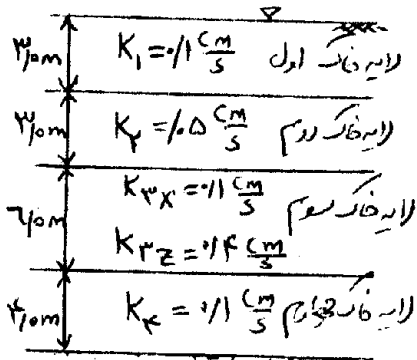 ۳/۰m K۱ = ۰/۱ cm/s لایه خاک اول
۳/۰m K۲ = ۰/۰۵ cm/s لایه خاک دوم
K۳x = ۰/۱ cm/s
۶/۰m لایه خاک سوم
K۳z = ۰/۴ cm/s
۴/۰m K۴ = ۰/۱ cm/s لایه خاک چهارم